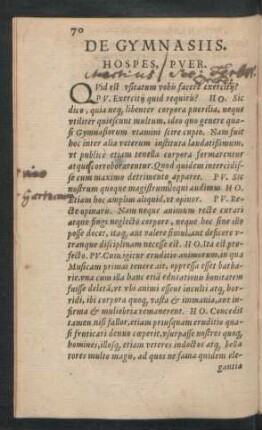 70
DE GYMNASIIS.
HOSPES, PVER.
QVid est vsitatum vobis facere exercitij?
PV. Exercitij quid requiris? HO. Sic
dico, quia neq; libenter corpora puerilia, neque
vtiliter quiescunt multum, ideo quo genere quasi
Gymnasiorum vtamini scire cupio. Nam fuit
hoc inter alia veterum instituta laudatissimum,
vt publicè etiam tenella corpora firmarentur
atque corroborarentur. Quod quidem intercidisse
cum maximo detrimento apparet. PV. Sic
nostrum quoque magistrum loqui audimus. HO.
Etiam hoc amplius aliquid, vt opinor. PV. Rectè
opinaris. Nam neque animum rectè curari
atque fingi neglecto corpore, neque hoc sine illo
posse docet, itaq; aut valere simul, aut deficere vtranque
disciplinam necesse est. HO. Ita est profecto.
PV. Cum igitur eruditio animorum, an qua
Musicam primas tenere ait, oppressa esset barbarie,
vna cum illa hanc etiã educationis bonitatem
fuisse deletã, vt vbi animi essent inculti atq; horridi,
ibi corpora quoq; vasta & immania, aut infirma
& muliebria remanerent. HO. Concedit
tamen, nisi fallor, etiam priusquam eruditio quasi
fruticari denuo cœperit, vsurpasse nostros quosq;
homines, illosq; etiam veteres indoctos atq; bellatores
multo magis, ad quos ne fama quidem elegantia